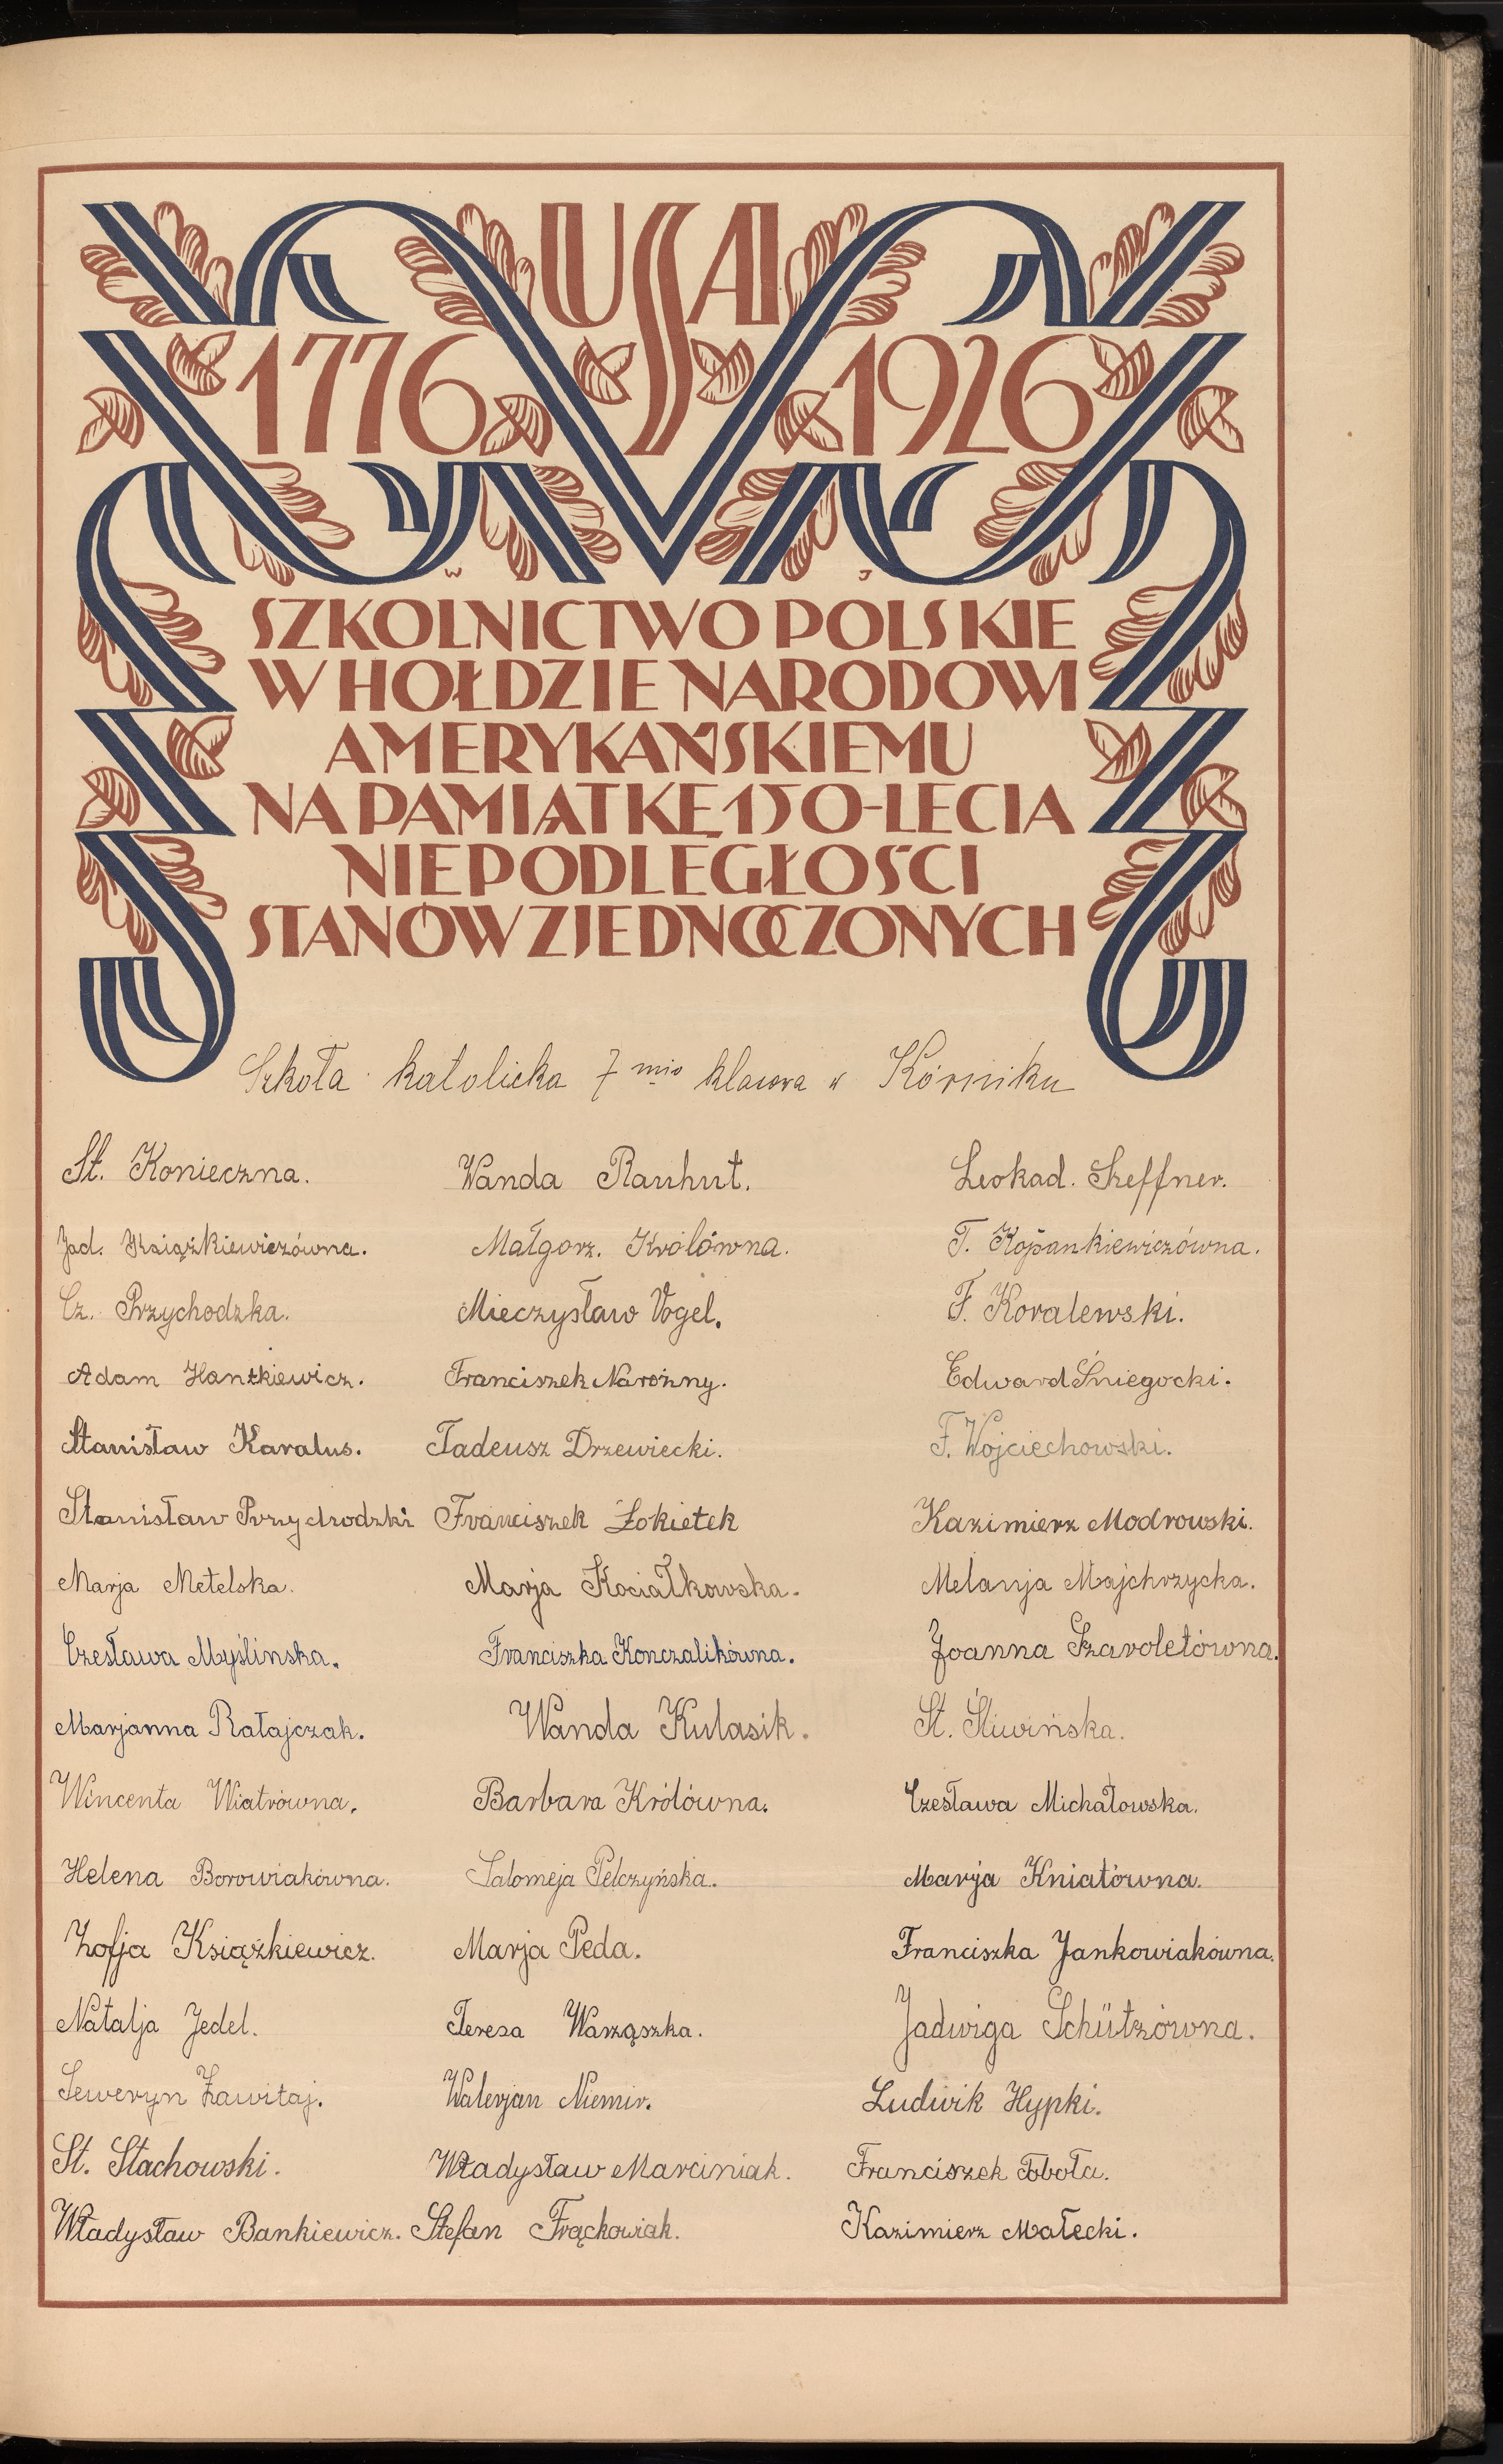 USA
1776 1926
W J
SZKOLNICTWO POLSKIE
W HOŁDZIE NARODOWI
AMERYKAŃSKIEMU
NA PAMIĄTKĘ 150-LECIA
NIEPODLEGŁOŚCI
STANÓW ZJEDNOCZONYCH
Szkoła katolicka 7 mio klasowa w Kórniku
St. Konieczna. Wanda Rauhut. Leokad. Sheffner.
Jad. Książkiewiczówna. Małgorz. Królówna. T. Kopankiewiczówna.
Cz. Przychodzka. Mieczysław Vogel. F. Koralewski.
Adam Hantkiewicz. Franciszek Narożny. Edward Śniegocki.
Stanisław Karalus. Tadeusz Drzewiecki. F. Wojciechowski.
Stanisław Przychodzki Franciszek Łokietek Kazimierz Modrowski.
Marja Metelska. Marja Kociałkowska. Melanja Majchrzycka.
Czesława Myślinska. Franciszka Konczalikówna. Joanna Szaroletówna.
Marjanna Ratajczak. Wanda Kulasik. St. Śliwińska.
Wincenta Wiatrówna. Barbara Królówna. Czesława Michałowska.
Helena Borowiakówna. Salomeja Pelczyńska. Marja Kniatówna.
Zofja Książkiewicz. Marja Peda. Franciszka Jankowiakówna.
Natalja Jedel. Teresa Warząszka. Jadwiga Schützówna.
Seweryn Zawitaj. Walerjan Niemir. Ludwik Hypki.
St. Stachowski. Władysław Marciniak. Franciszek Toboła.
Władysław Bankiewicz. Stefan Frąckowiak. Kazimierz Małecki.